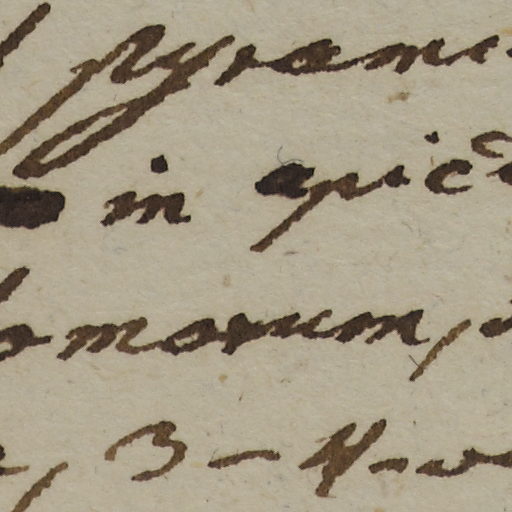 pyrami
in apice
morum,
, 3-4-